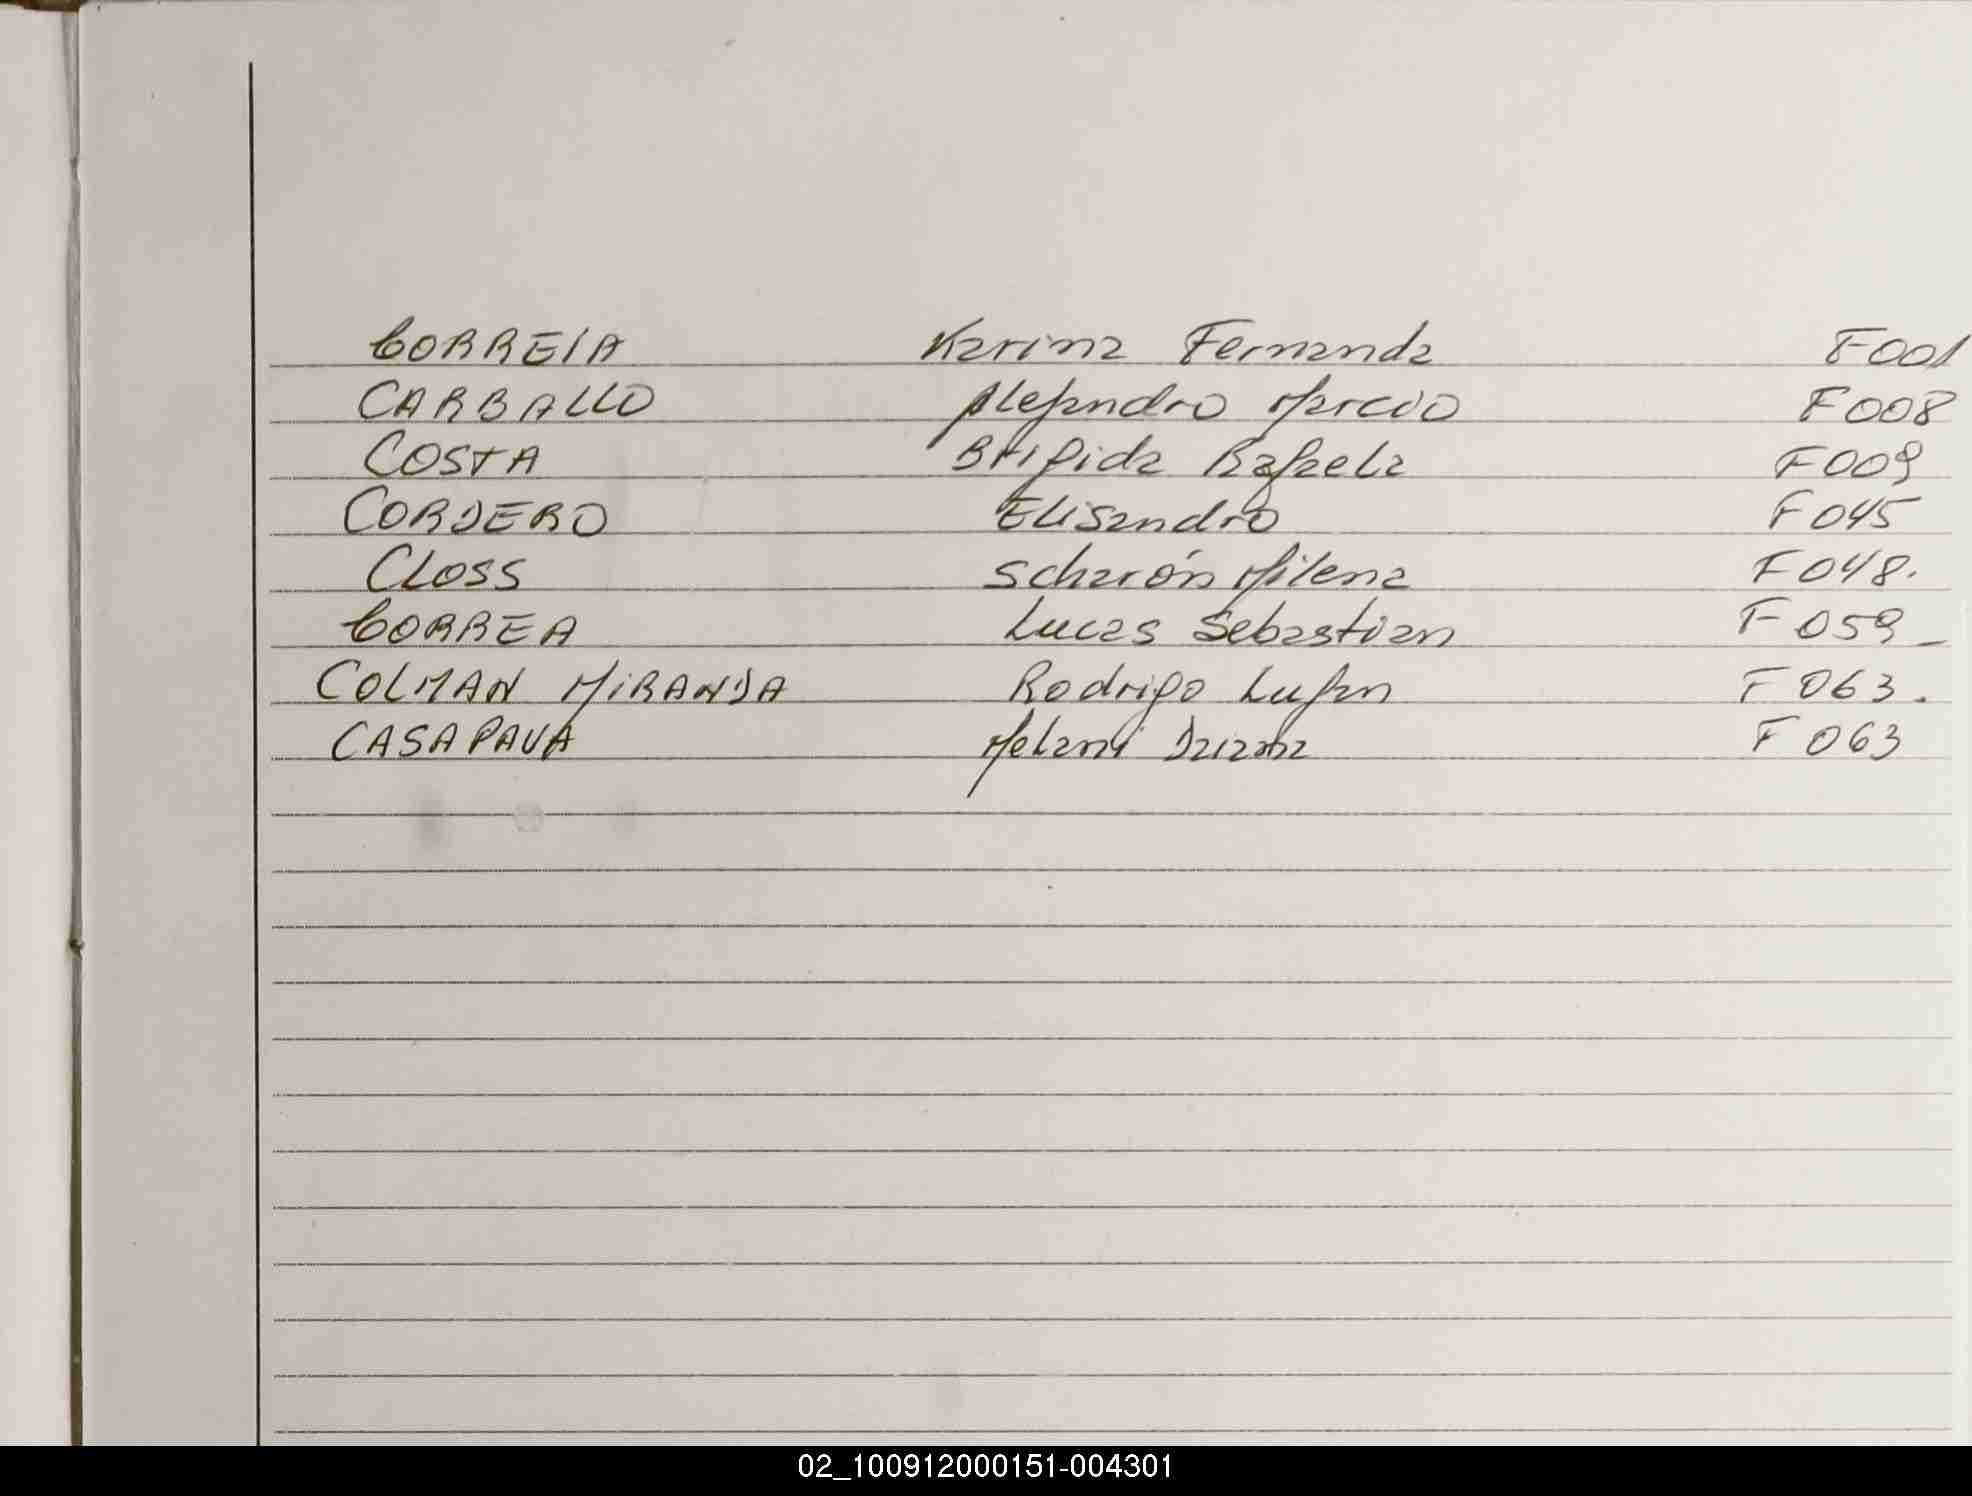 CORREIA Karina Fernanda F001
CARBALLO Alejandro Marcio F008
COSTA Brigida Rafaela F009
CORDERO Elisandro F045
CLOSS Scharón Milena F048.
CORREA Lucas Sebastian F059_
COLMAN MIRANDA Rodrigo Lujan F063.
CASAPAVA Melani Daiana F063
02_100912000151-004301